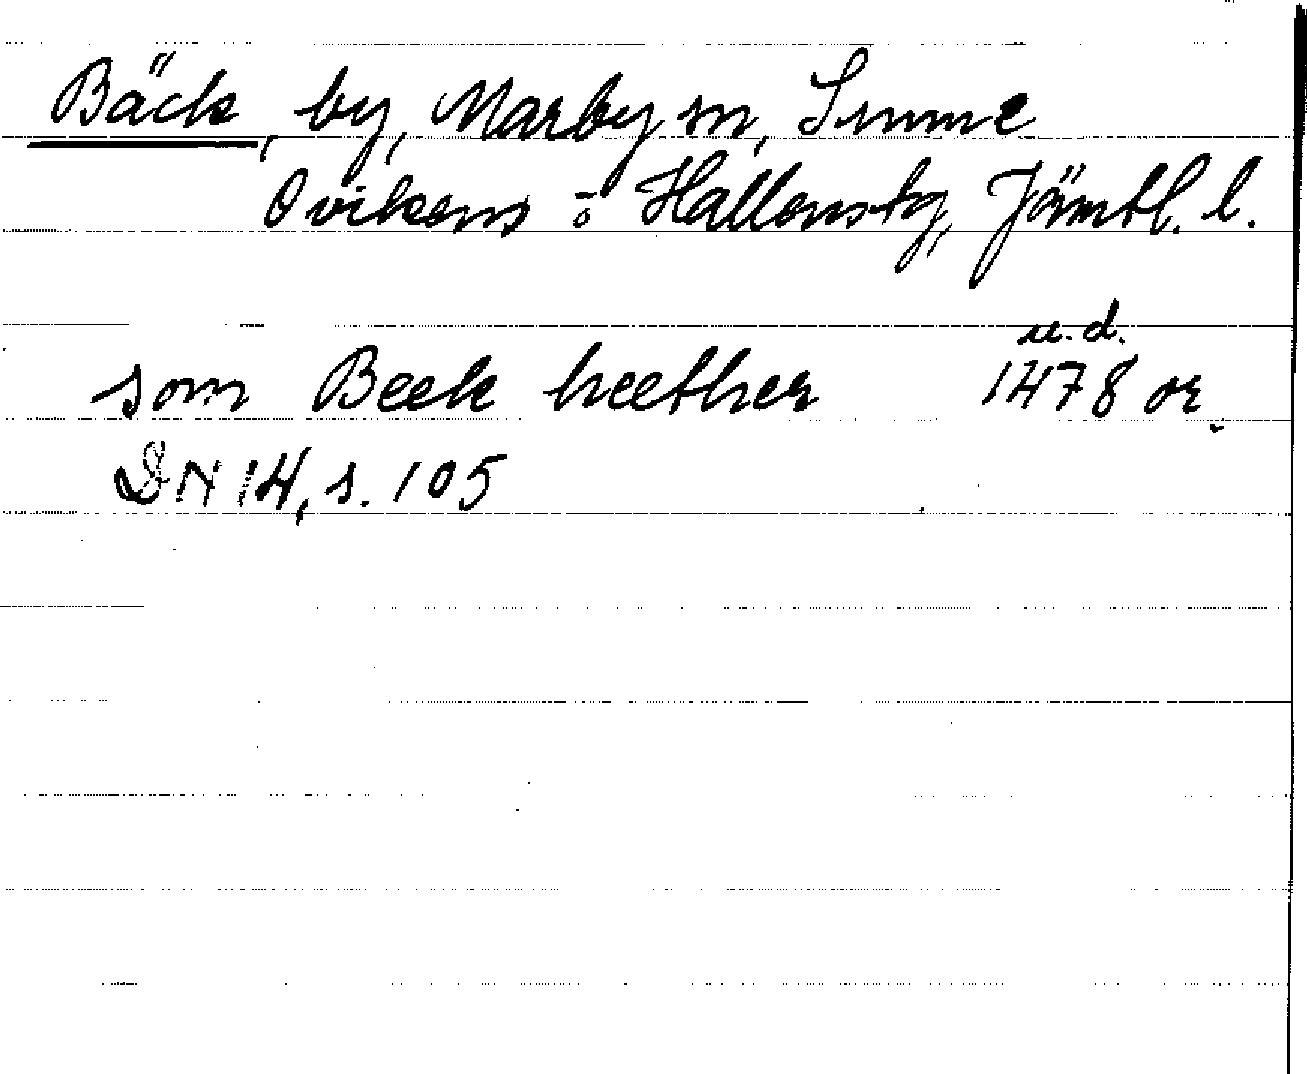 Bäck, by, Marby sn, Sunne
Ovikens o Hallenstg, Jämtl. l.
u.d.
som Beek heether 1478 or.
DN 14, s. 105